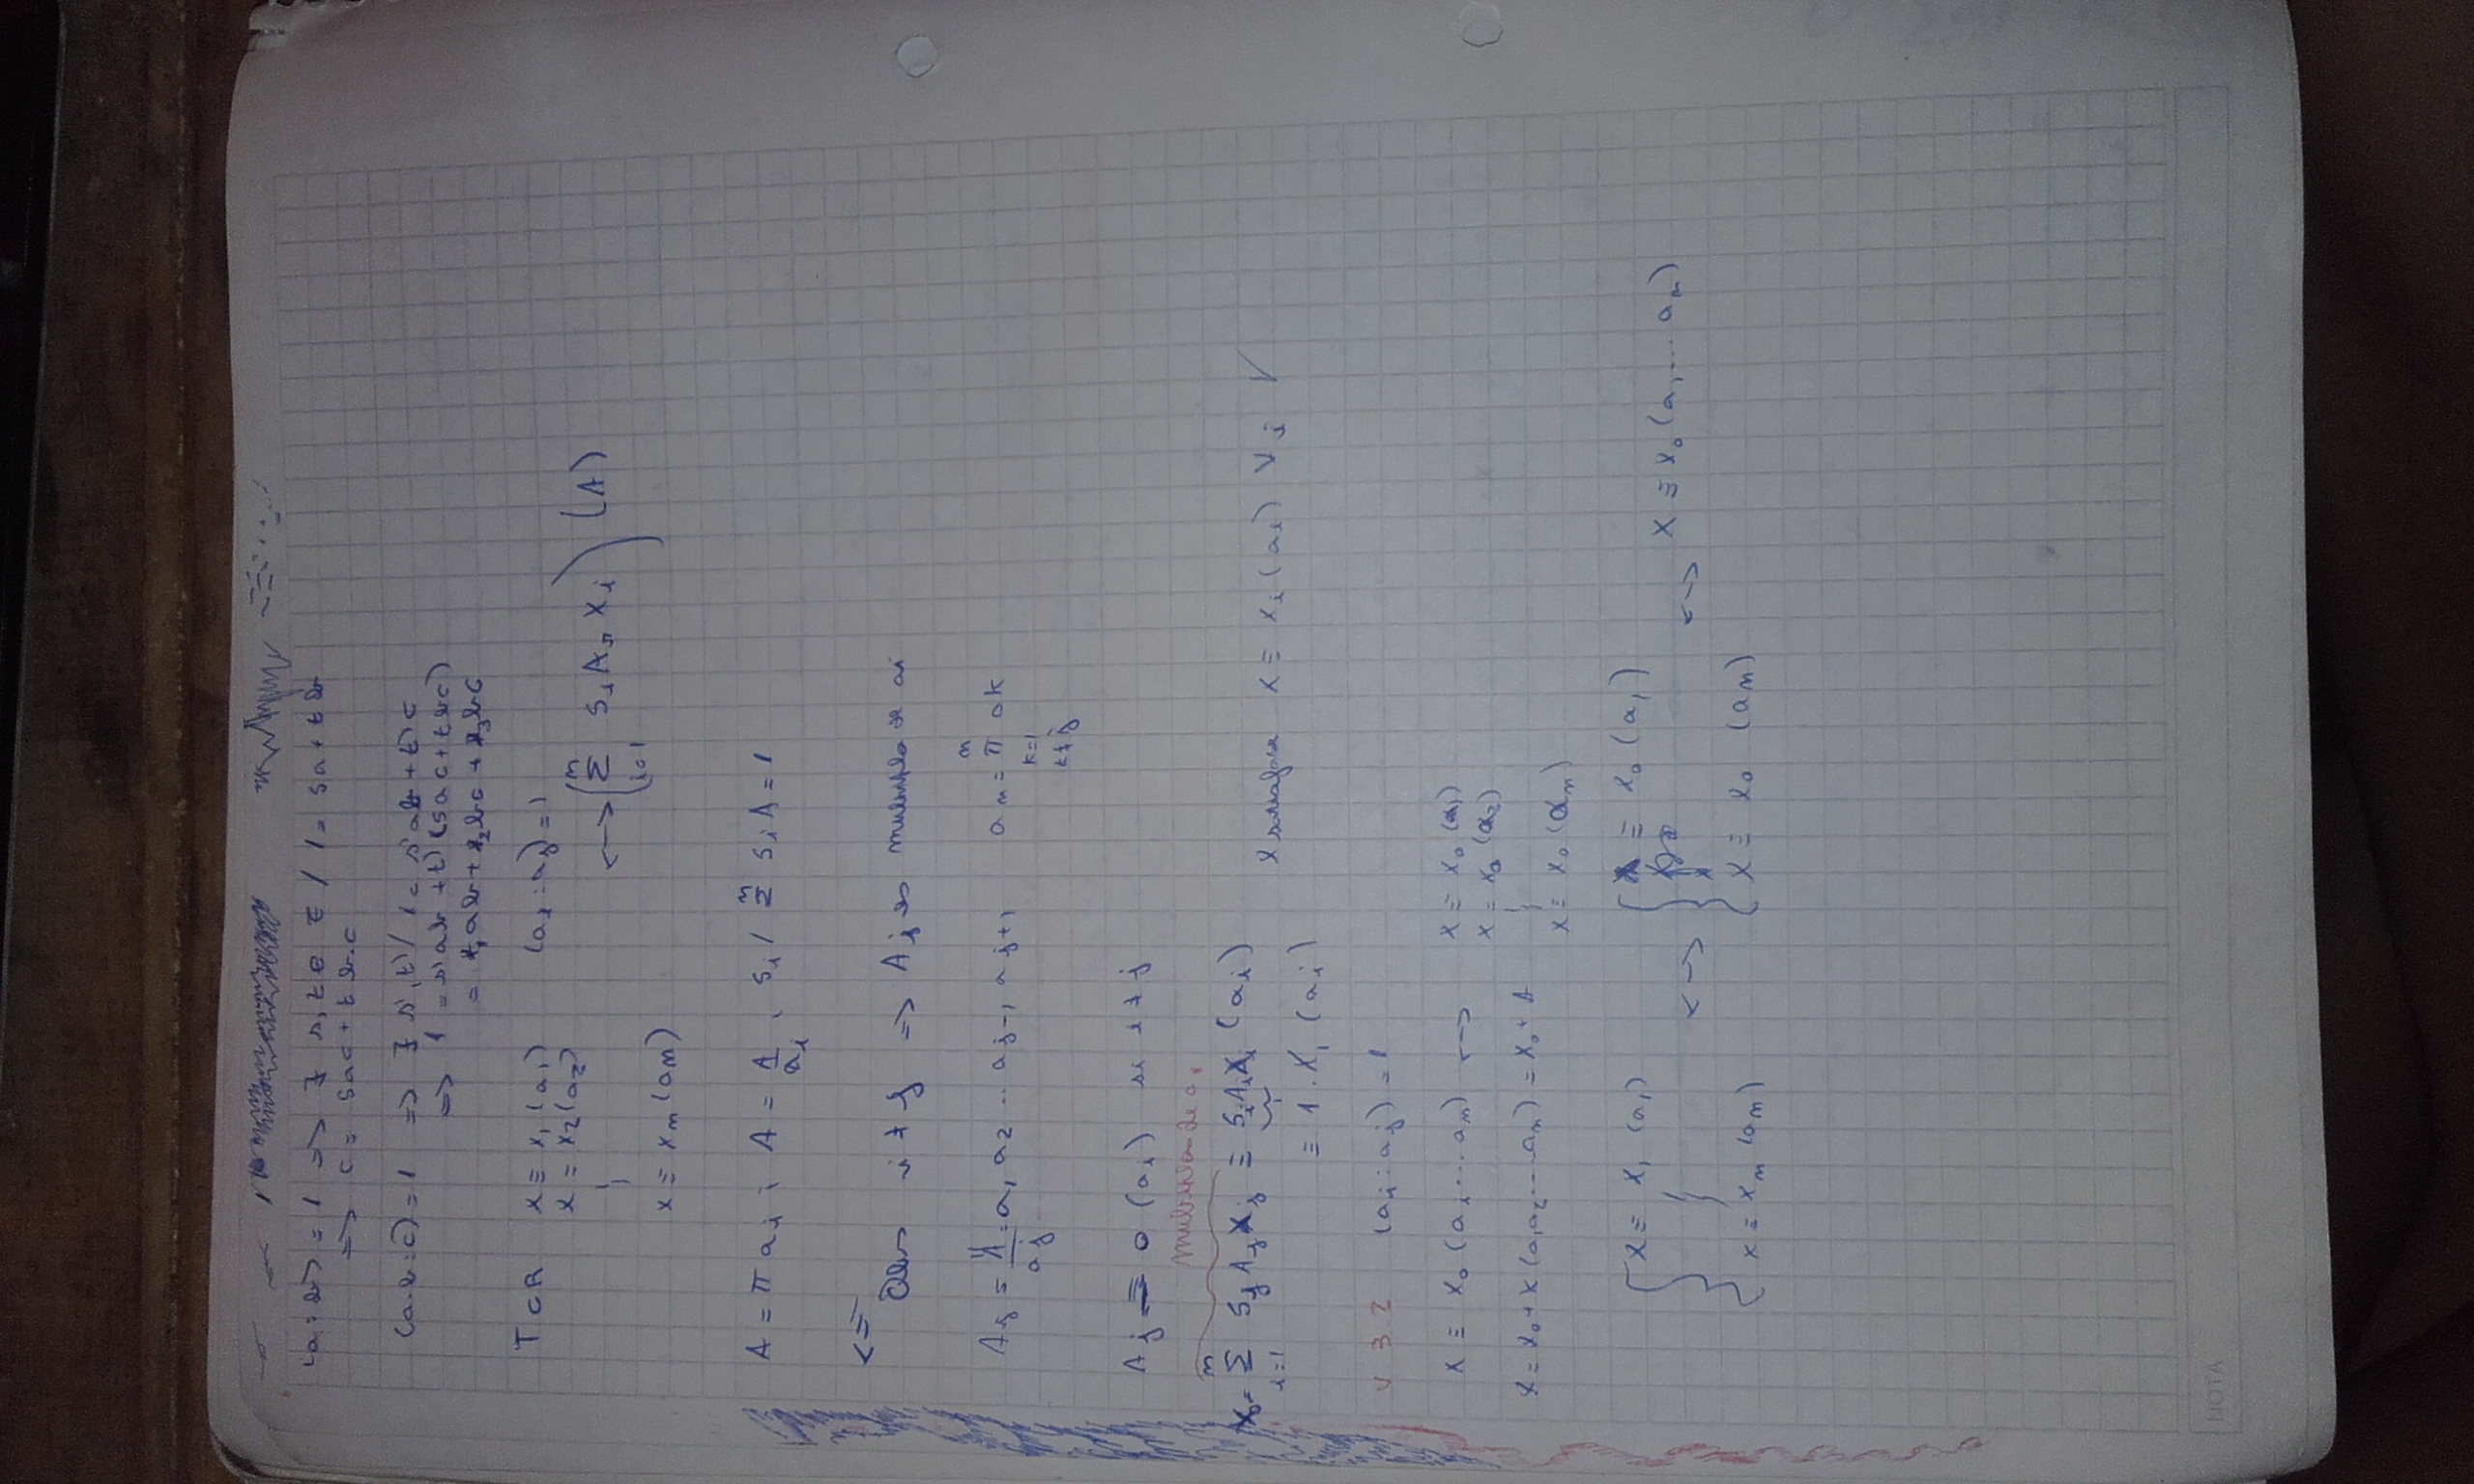 (a:b) = 1 => ∃ s, t ∈ Z / 1 = sa + tb
=> c = sac + tb.c
(a.b:c) = 1 => ∃ s', t' / 1 = s'ab + t'c
=> 1 = s'ab + t'(sac + tbc)
= r₁ab + r₂bc + r₃bc
TCR x ≡ x₁ (a₁) (aᵢ : aⱼ) = 1
x ≡ x₂ (a₂)
<-> (Σ i=1 n sᵢ Aᵢ xᵢ) (A)
x ≡ xₙ (an)
A = π aᵢ ; A = A/aᵢ , sᵢ / Σ n sᵢ A = 1
<=
Obs i ≠ j => Aⱼ es multiplo de ai
Aⱼ = A/aⱼ = a₁ a₂ .. aⱼ₋₁ aⱼ₊₁ aₙ = π n k=1 k≠j ak
Aⱼ ≡ 0 (aᵢ) si i ≠ j
multiplo de aᵢ
x₀ = Σ n i=1 sⱼ Aⱼ xⱼ ≡ sᵢ Aᵢ xᵢ (aᵢ)
x satisface x ≡ xᵢ (aᵢ) ∀ i ✓
≡ 1 . xᵢ (aᵢ)
v 3.2 (aᵢ : aⱼ) = 1
x ≡ x₀ (aᵢ ... aₙ) <-> x ≡ x₀ (a₁)
x ≡ x₀ (a₂)
x = x₀ + k (a₁a₂ ... aₙ) = x₀ + A
x ≡ x₀ (aₙ)
x ≡ x₁ (a₁) <-> x ≡ x₀ (a₁) <-> x ≡ x₀ (a₁ ... aₙ)
x ≡ xₙ (an) x ≡ x₀ (an)
NOTA